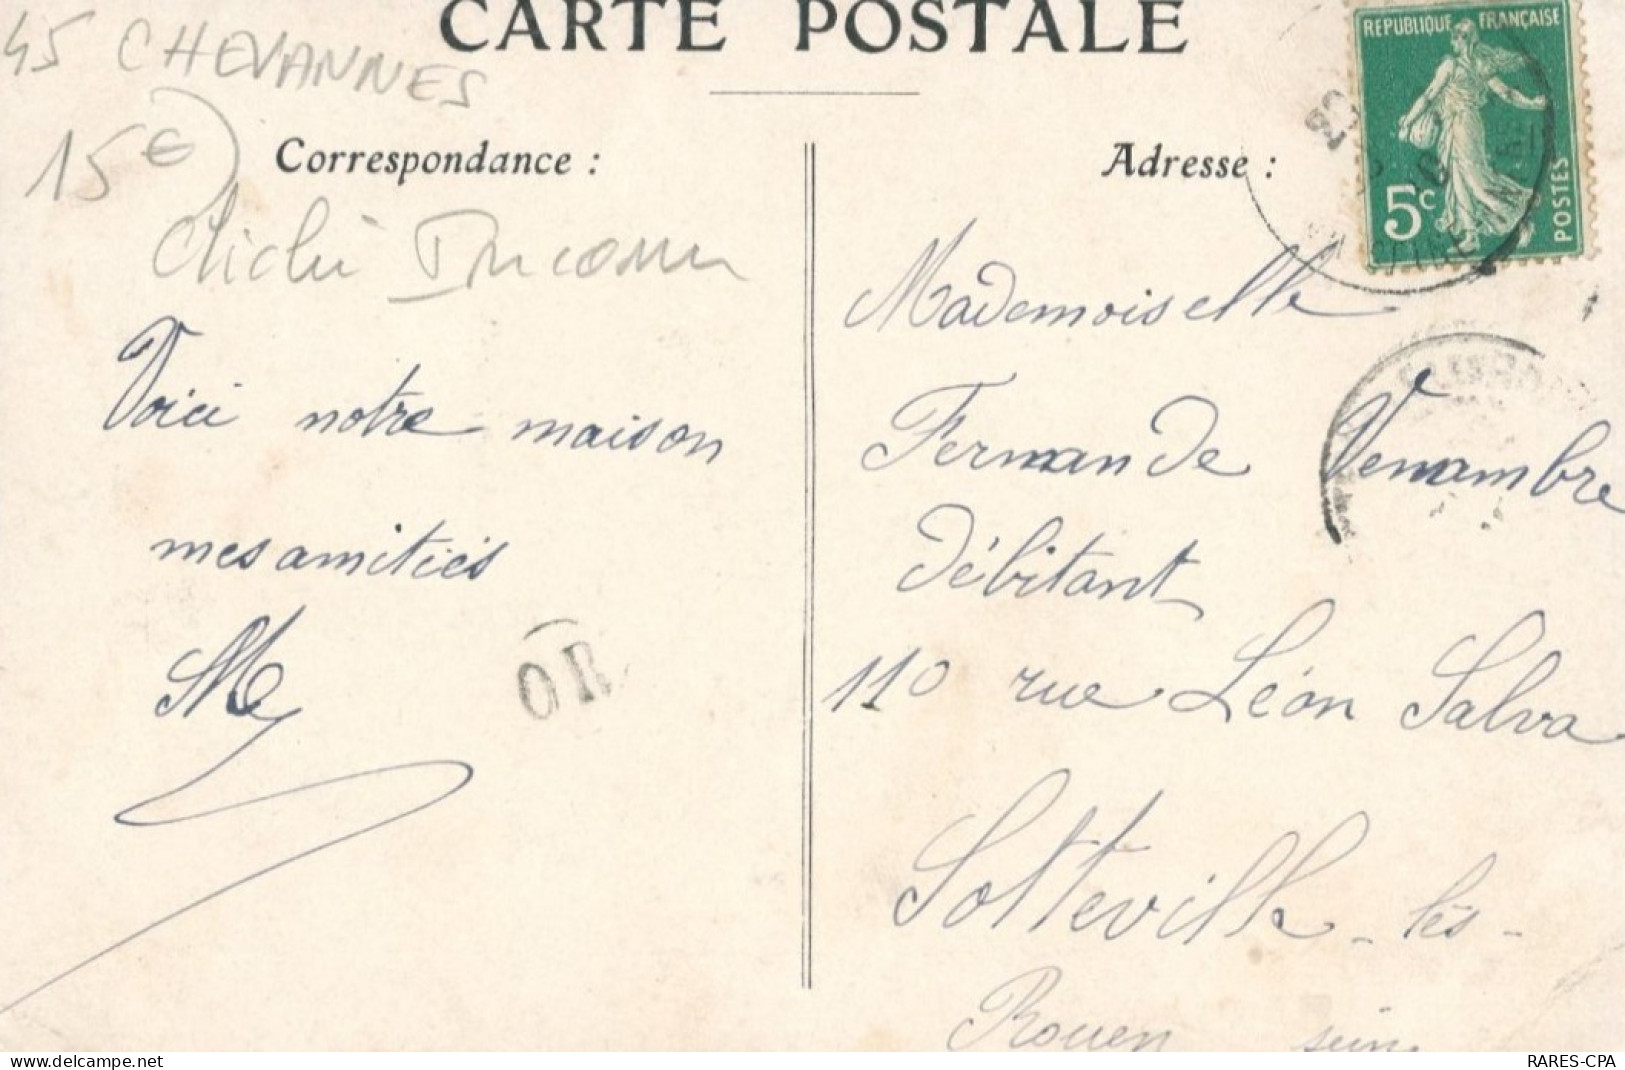 CARTE POSTALE
45 CHEVANNES
15€
Correspondance :
Cliché
Voici notre maison
mes amitiés
OR
Adresse :
REPUBLIQUE FRANÇAISE
5c
POSTES
Mademoiselle
Fernande Venambre
Débitant
110 rue Léon Salva
Sotteville - lès -
Rouen
RARES-CPA